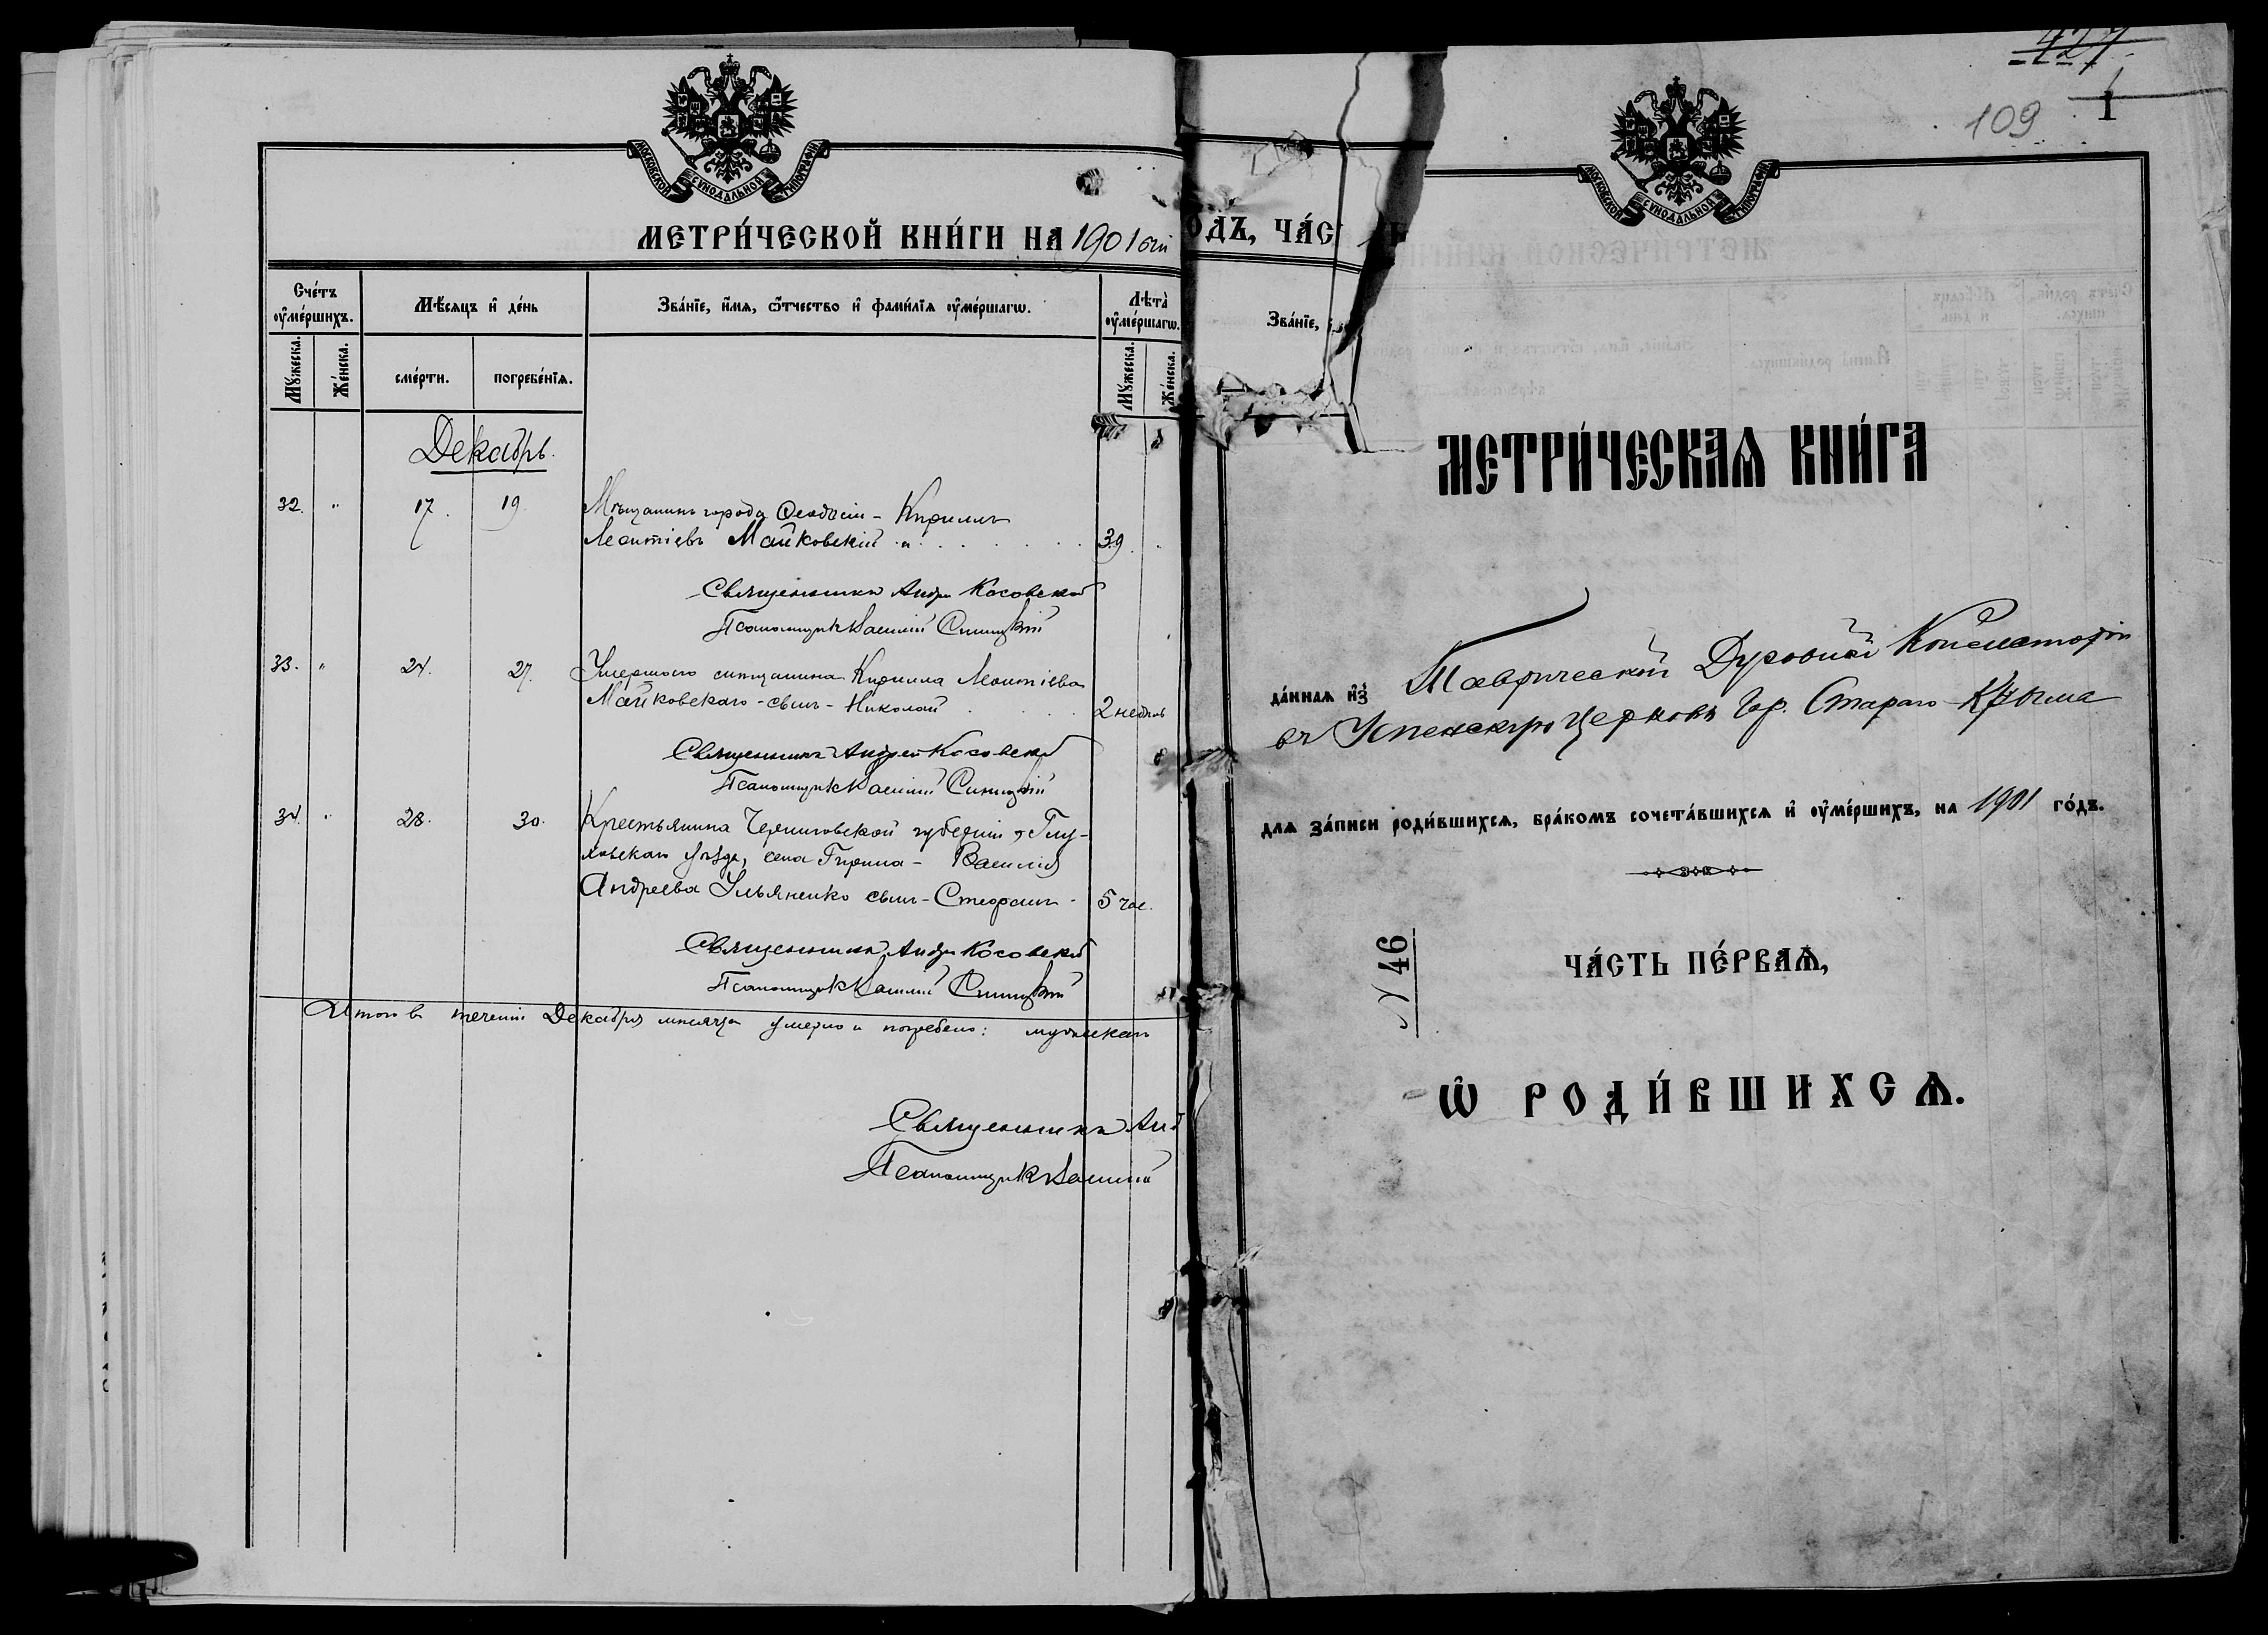 МОСКОВСКОЙ СѴНОДАЛЬНОЙ ТИПОГРАФІИ
МЕТРИ́ЧЕСКОЙ КНИ́ГИ НА 1901 ый
Сче́тъ ᲂу҆ме́ршихъ.
Мѣ́сяцъ и҆ де́нь
Зва́нїе, и҆́мѧ, ѻ҆́тчество и҆ фами́лїѧ ᲂу҆ме́ршагѡ.
Лѣта̀ ᲂу҆ме́ршагѡ.
Мꙋ́жеска.
Же́нска.
сме́рти.
погребе́нїѧ.
Мꙋ́жеска.
Же́нска.
Декабрь.
32. " 17. 19. Мѣщанинъ города Ѳеодосіи - Кириллъ
Леонтіевъ Майковскій 39.
Священникъ Андрей Косовскій
Псаломщикъ Василій Синицкій
33. " 24. 27. Умершаго мѣщанина Кирилла Леонтіева
Майковскаго - сынъ - Николай 2 недѣль
Священникъ Андрей Косовскій
Псаломщикъ Василій Синицкій
34. " 28. 30. Крестьянина Черниговской губерніи, Глу-
ховскаго уѣзда, села Гирина - Василія
Андреева Ульяненко сынъ - Стефанъ - 5 час.
Священникъ Андрей Косовскій
Псаломщикъ Василій Синицкій
Итого въ теченіи Декабря мѣсяца умерло и погребено: мужескаго
Священникъ Анд
Псаломщикъ Василій
ОДЪ, ЧА́С
Зва́нїе,
427
109
1
МОСКОВСКОЙ СѴНОДАЛЬНОЙ ТИПОГРАФІИ
МЕТРИ́ЧЕСКАѦ КНИ́ГА
да́ннаѧ и҆з̾ Таврической Духовной Консисторіи
въ Успенскую церковь гор. Стараго Крыма
длѧ за́писи роди́вшихсѧ, бра́комъ сочета́вшихсѧ и҆ ᲂу҆ме́ршихъ, на 1901 го́дъ.
№ 46
ЧА́СТЬ ПЕ́РВАѦ,
Ѽ РОДИ́ВШИХСѦ.